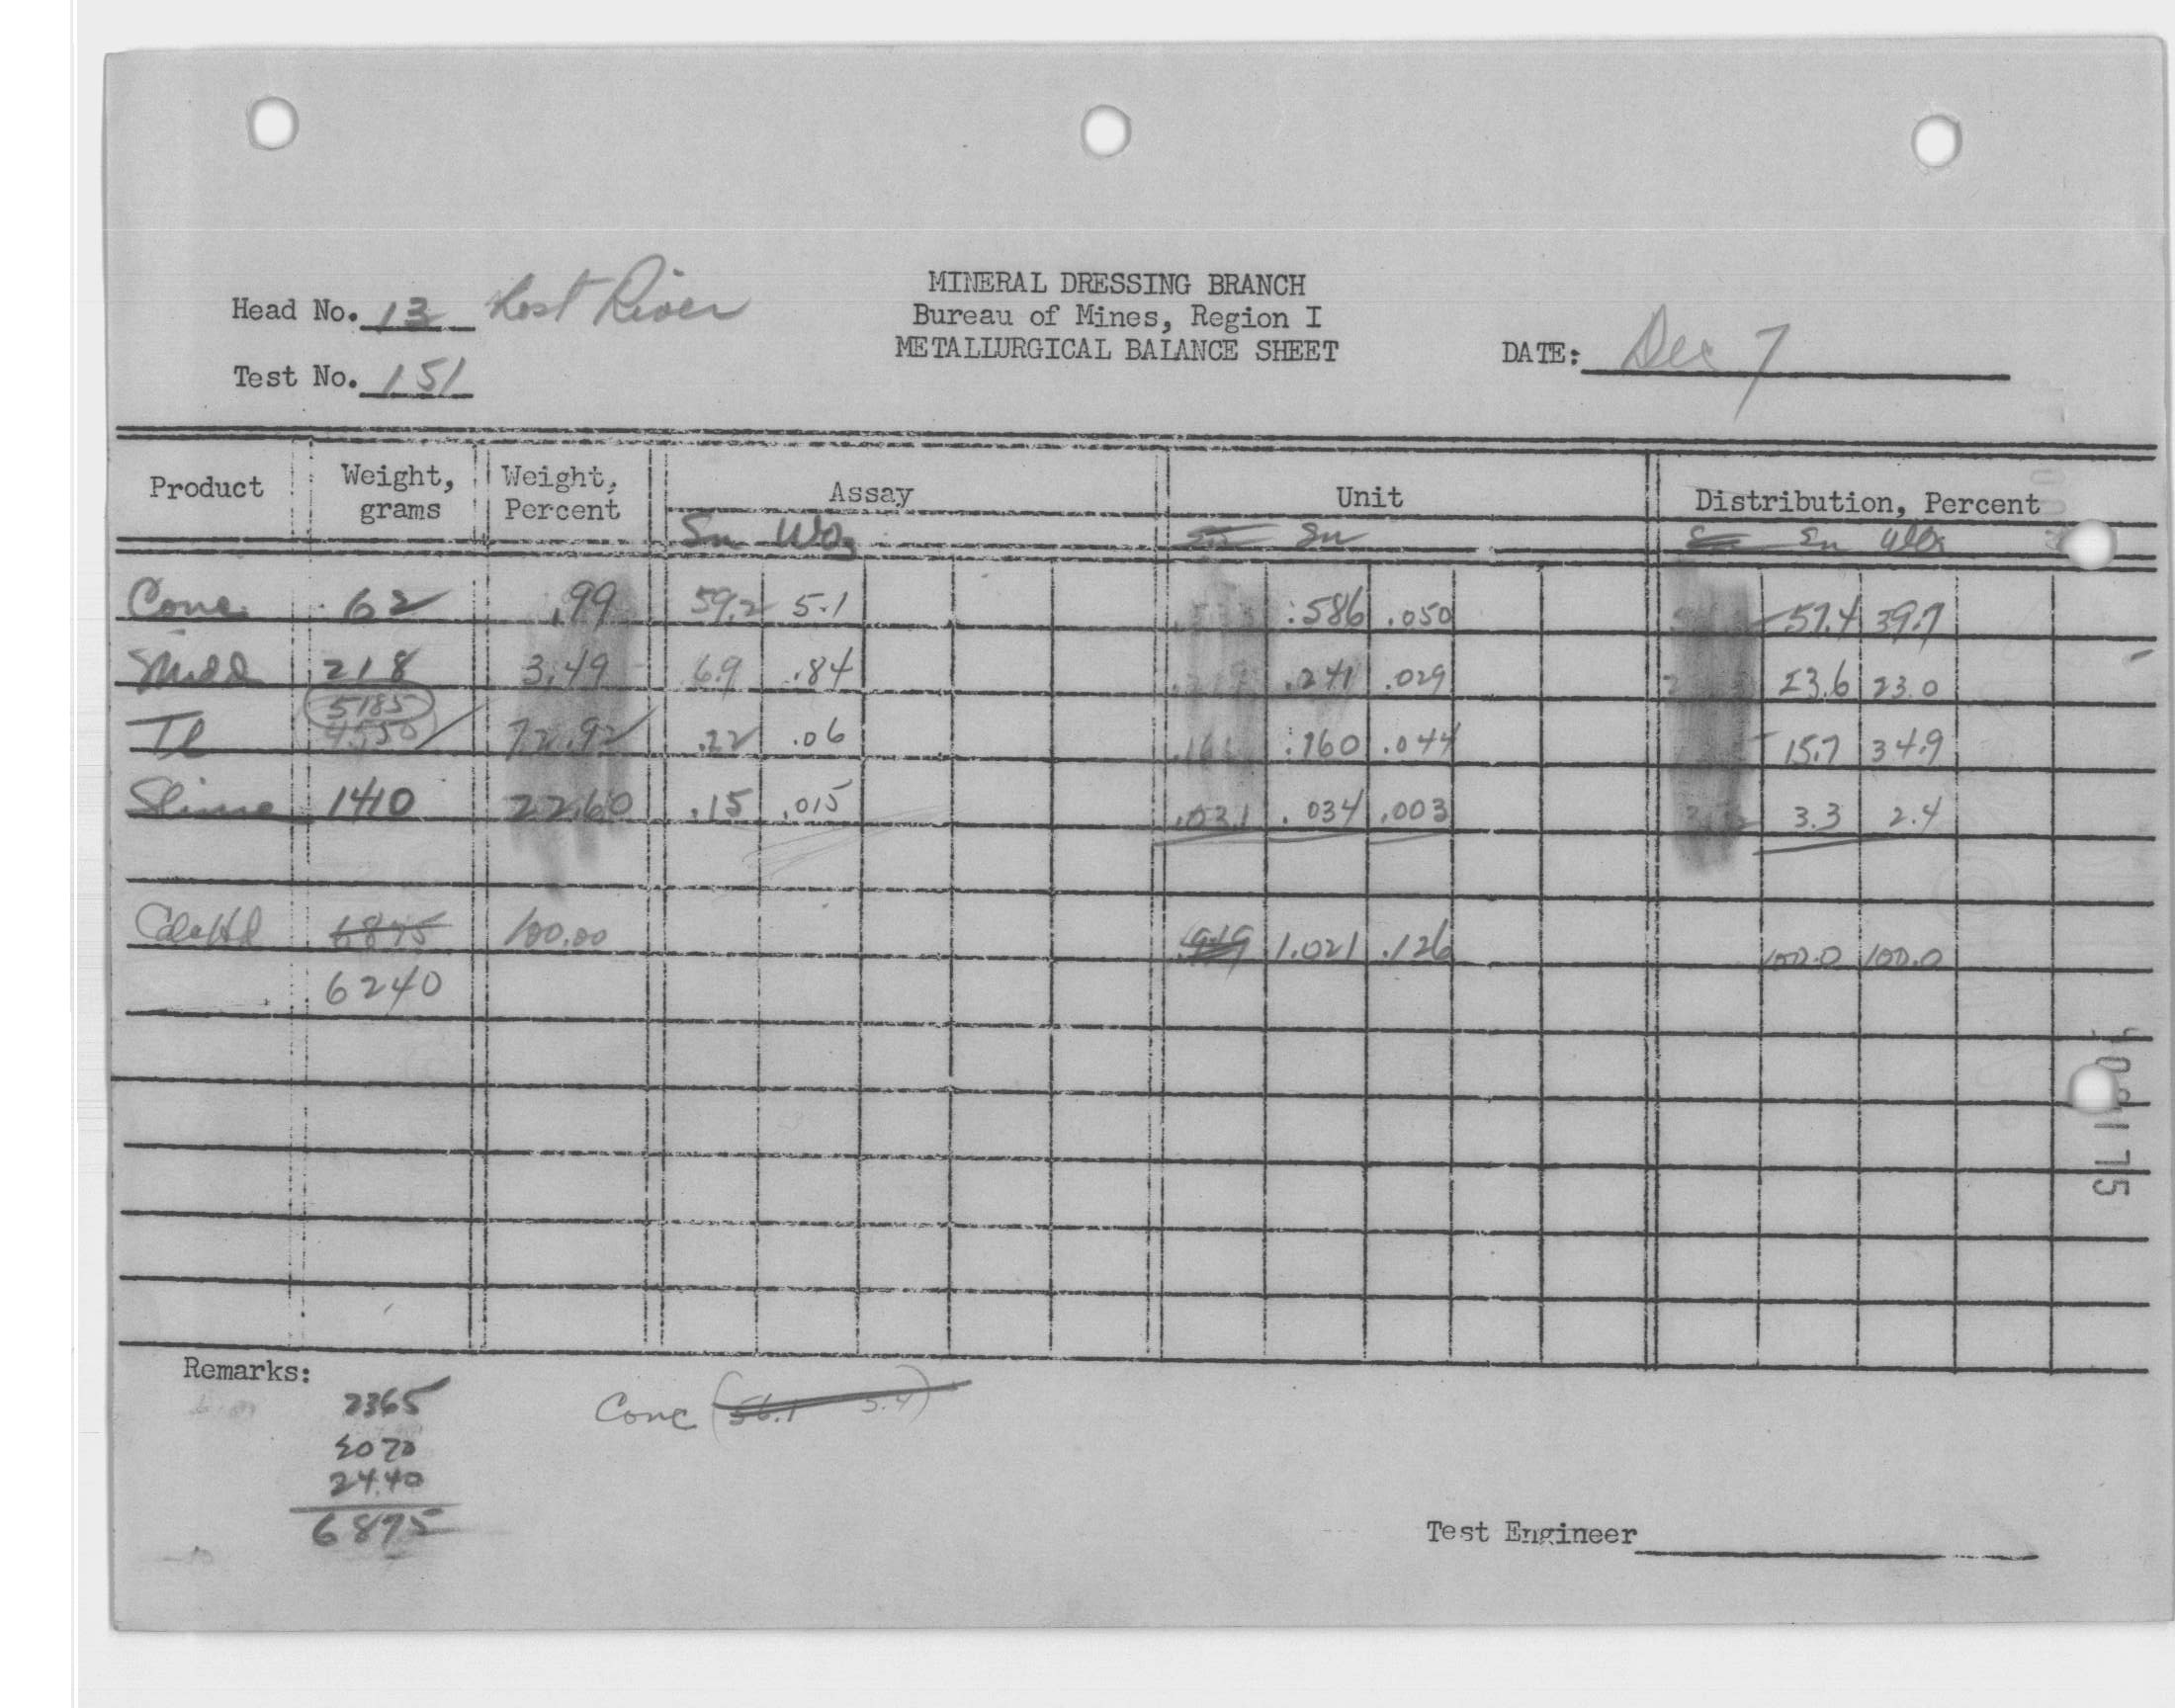 MINERAL DRESSING BRANCH
Head No. 13 Lost River
Bureau of Mines, Region I
METALLURGICAL BALANCE SHEET
DATE: Dec 7
Test No. 151
Product Weight, grams Weight, Percent Assay Unit Distribution, Percent
Sn WO3 Sn Sn Sn Sn WO3
Conc 62 .99 59.2 5.1 .586 .050 57.4 39.7
Midd 218 3.49 6.9 .84 .241 .029 23.6 23.0
5185
Tl 4550 72.92 .22 .06 .161 .160 .044 15.7 34.9
Slime 1410 22.60 .15 .015 .031 .034 .003 3.3 2.4
Calc Hd 6875 100.00 .949 1.021 .126 100.0 100.0
6240
Remarks:
2365
2070
2440
6875
Conc (56.1 5.4)
Test Engineer